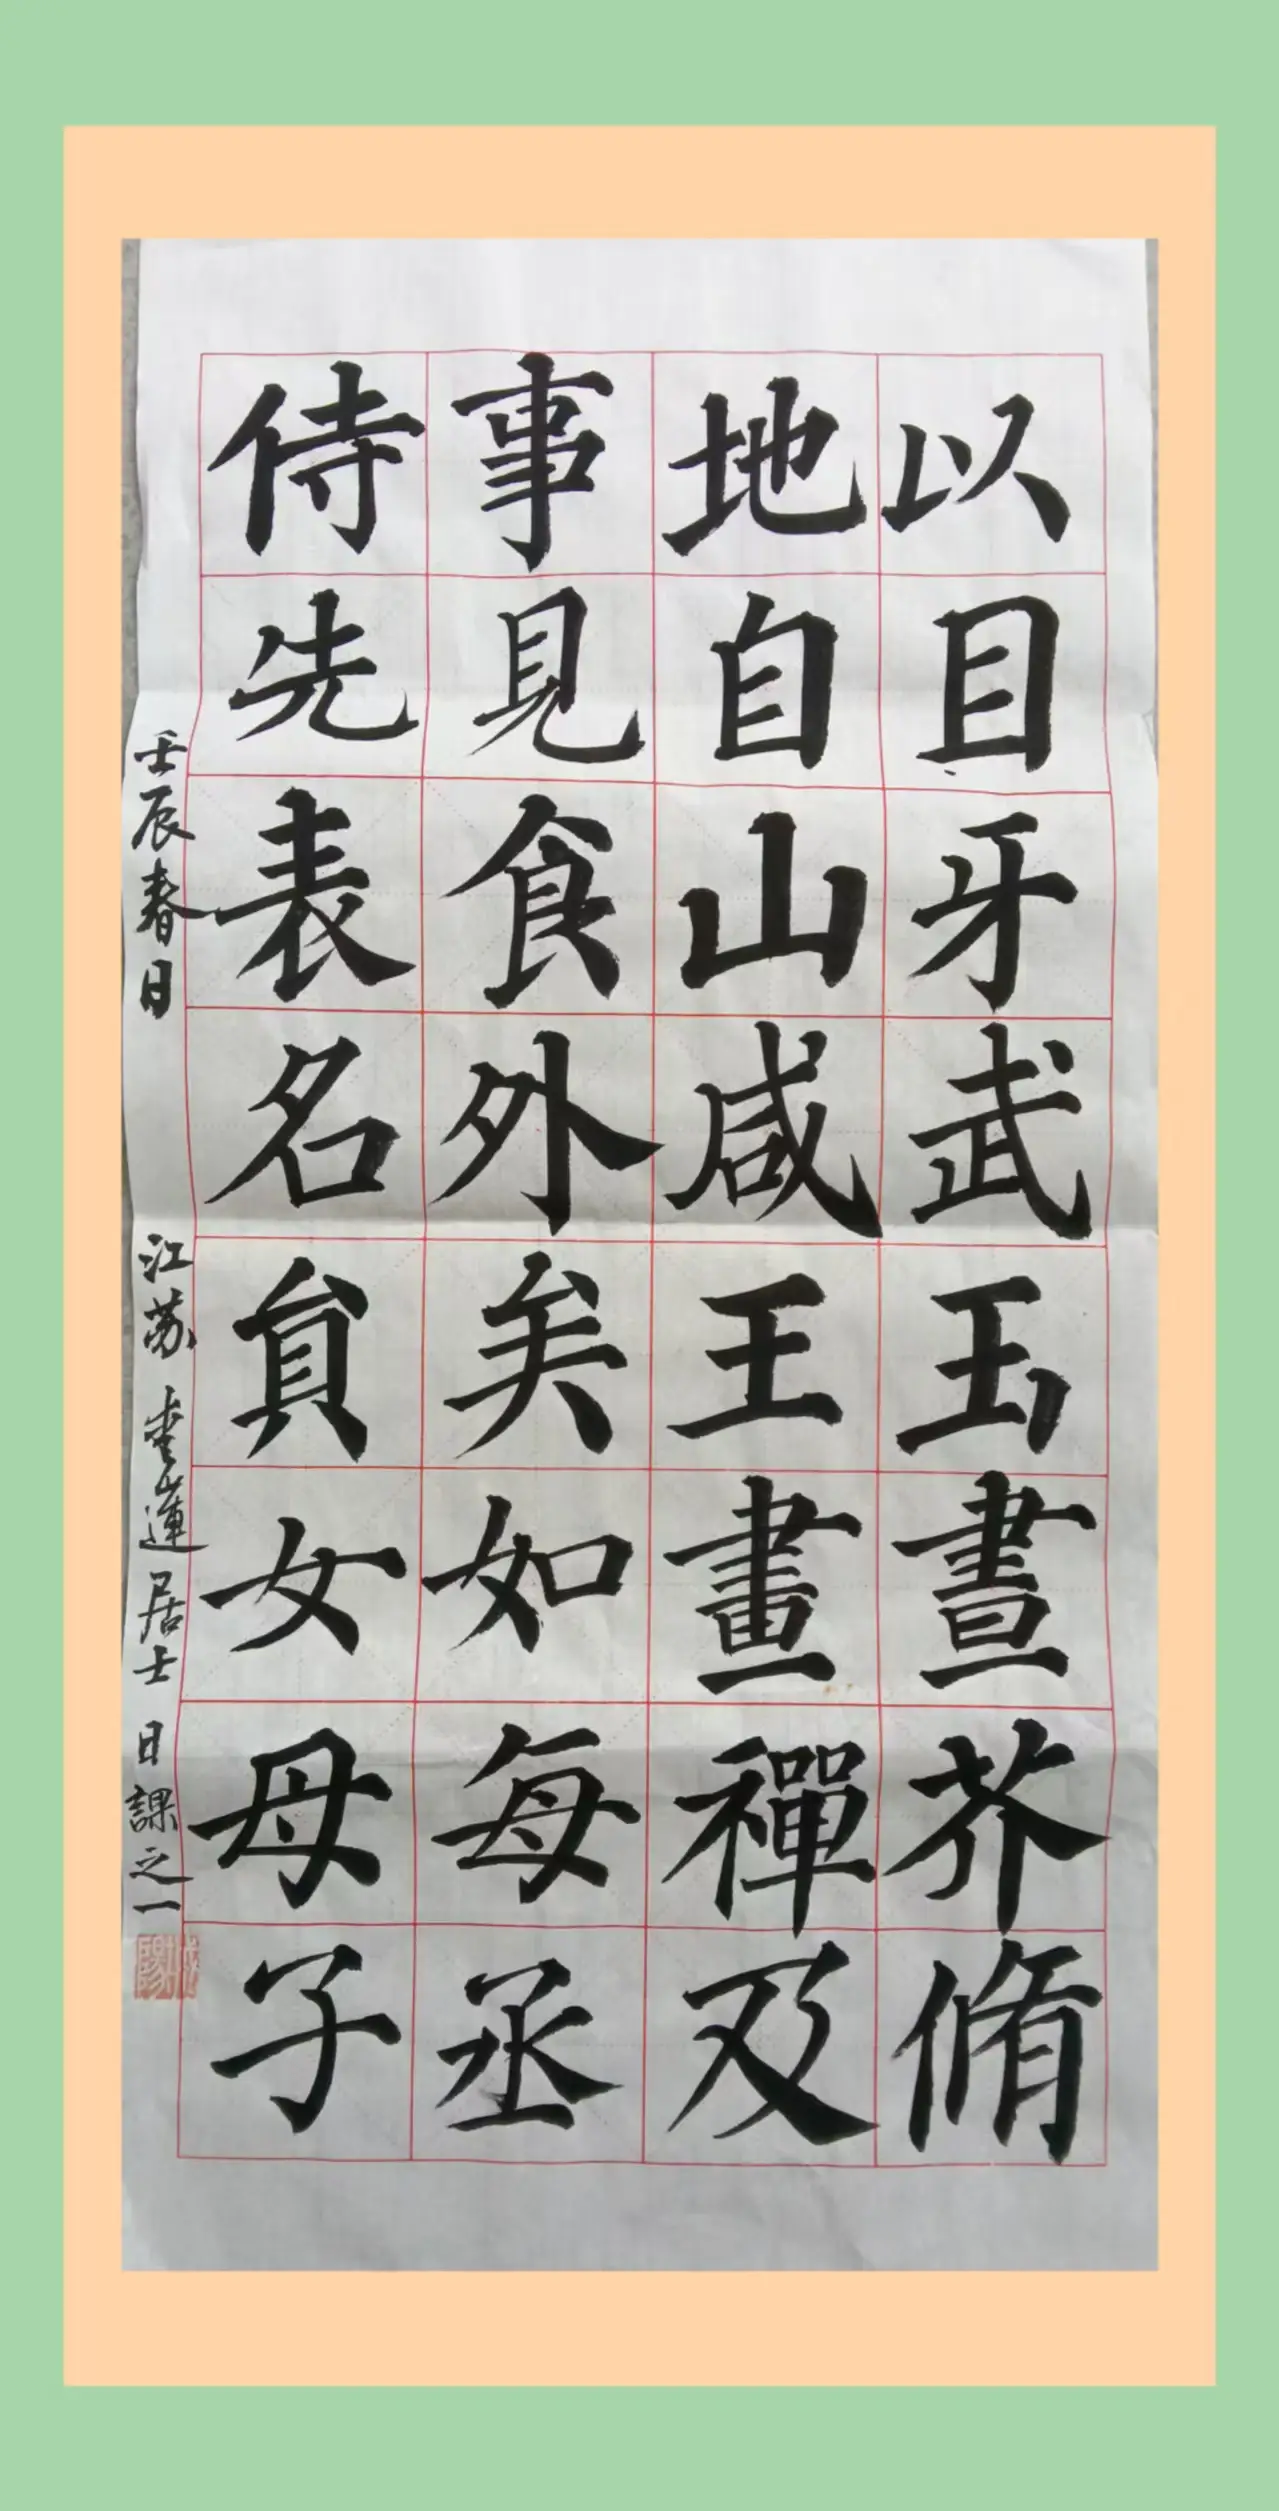 以目牙武玉晝芥脩
地自山咸王畫禪及
事見食外矣如每丞
侍先表名貟女母子
壬辰春日 江苏 蓮居士 日課之一